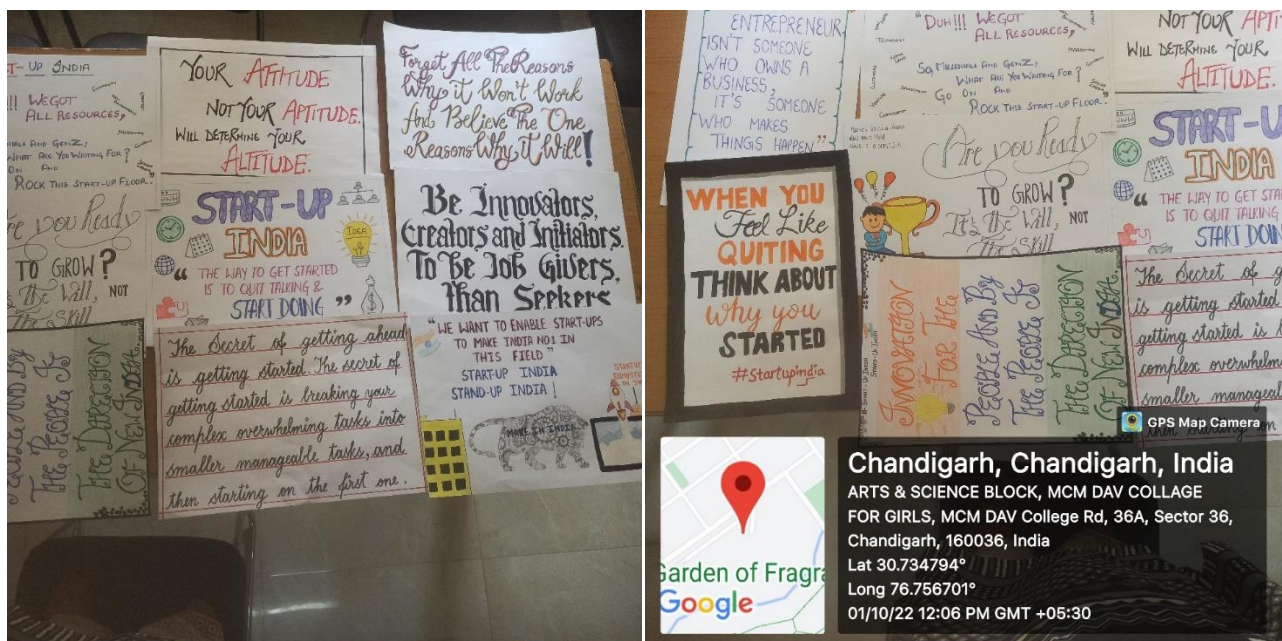 UP INDIA
!!! WE GOT
ALL RESOURCES,
AND GENZ,
WHAT ARE YOU WAITING FOR?
ON AND
ROCK THIS START-UP FLOOR.
YOUR ATTITUDE
NOT YOUR APTITUDE.
WILL DETERMINE YOUR
ALTITUDE.
Forget All The Reasons
Why it Won't Work
And Believe The One
Reasons Why it Will!
you Ready
TO GROW?
The Will, NOT
The Skill
START-UP
INDIA
IDEA
“ THE WAY TO GET STARTED
IS TO QUIT TALKING &
START DOING ”
Be Innovators,
Creators and Initiators.
To Be Job Givers,
Than Seekers
PEOPLE AND BY
THE PEOPLE IS
THE DIRECTION
OF NEW INDIA.
The Secret of getting ahead
is getting started. The secret of
getting started is breaking your
complex overwhelming tasks into
smaller manageable tasks, and
then starting on the first one.
"WE WANT TO ENABLE START-UPS
TO MAKE INDIA NO1 IN
THIS FIELD"
START-UP INDIA
STAND-UP INDIA!
MAKE IN INDIA
ENTREPRENEUR
ISN'T SOMEONE
WHO OWNS A
BUSINESS,
IT'S SOMEONE
WHO MAKES
THINGS HAPPEN”
DUH!!! WE GOT
ALL RESOURCES,
SO, MILLENNIALS AND GENZ,
WHAT ARE YOU WAITING FOR?
GO ON AND
ROCK THIS START-UP FLOOR.
NOT YOUR APTI
WILL DETERMINE YOUR
ALTITUDE.
Are you Ready
TO GROW?
It's The Will, NOT
The Skill
START-U
INDIA
“ THE WAY TO GET STAR
IS TO QUIT TALKING
START DOIN
WHEN YOU
Feel Like
QUITING
THINK ABOUT
why you
STARTED
#startupindia
INNOVATION
FOR THE
PEOPLE AND BY
THE PEOPLE IS
THE DIRECTION
OF NEW INDIA.
The Secret of g
is getting started
getting started is b
complex overwhelm
smaller manageabl
then starting on
GPS Map Camera
Garden of Fragra
Google
Chandigarh, Chandigarh, India
ARTS & SCIENCE BLOCK, MCM DAV COLLAGE
FOR GIRLS, MCM DAV College Rd, 36A, Sector 36,
Chandigarh, 160036, India
Lat 30.734794°
Long 76.756701°
01/10/22 12:06 PM GMT +05:30